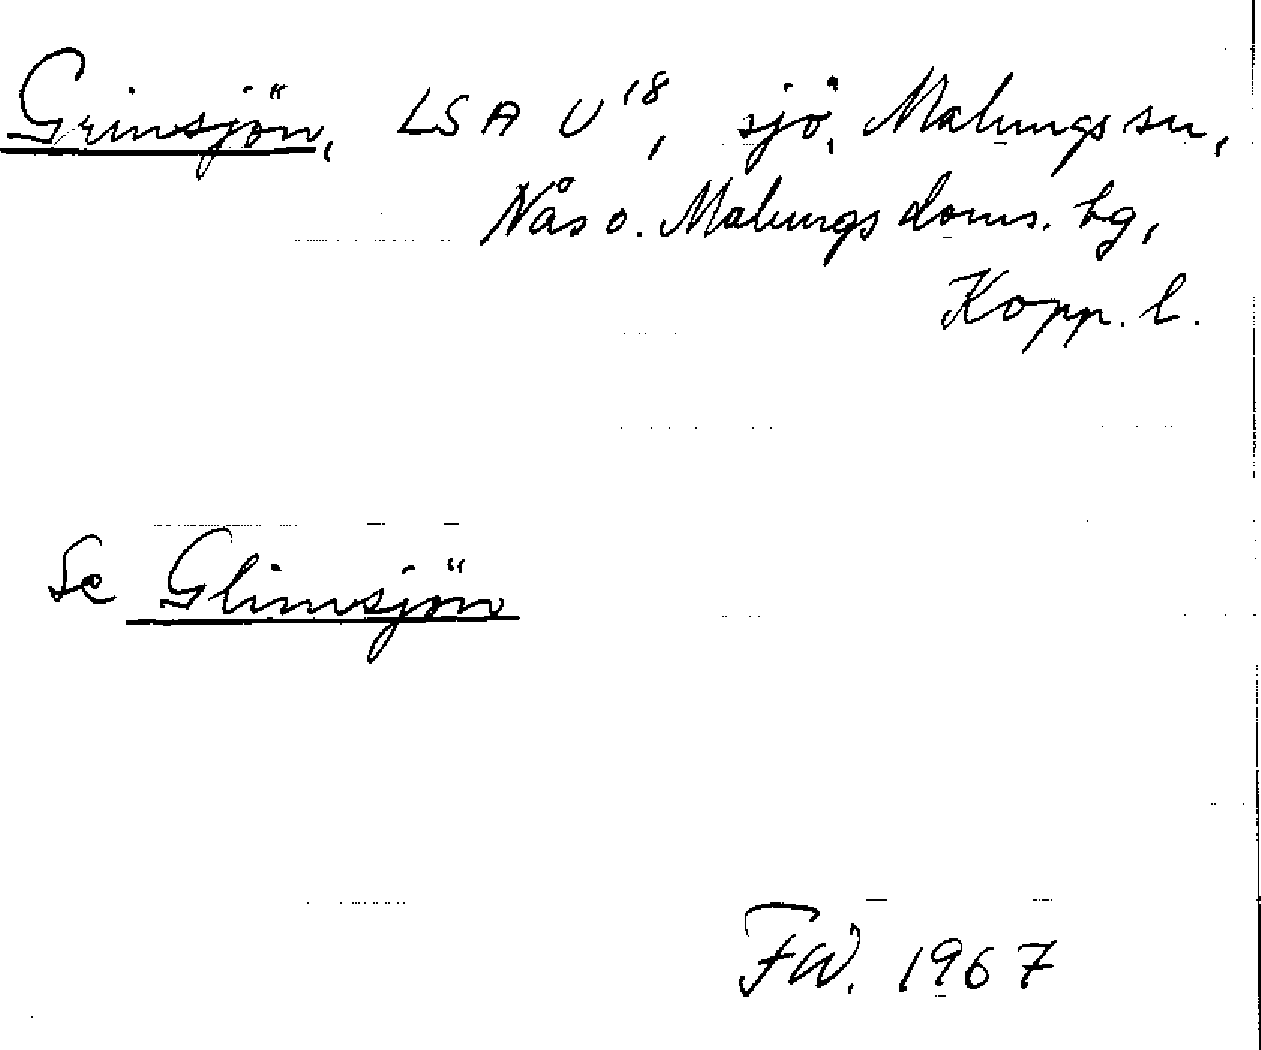 Grinsjön, LSA U18, sjö, Malungs sn,
Nås o. Malungs doms. hg,
Kopp. l.
Se Glimsjön
FW. 1967